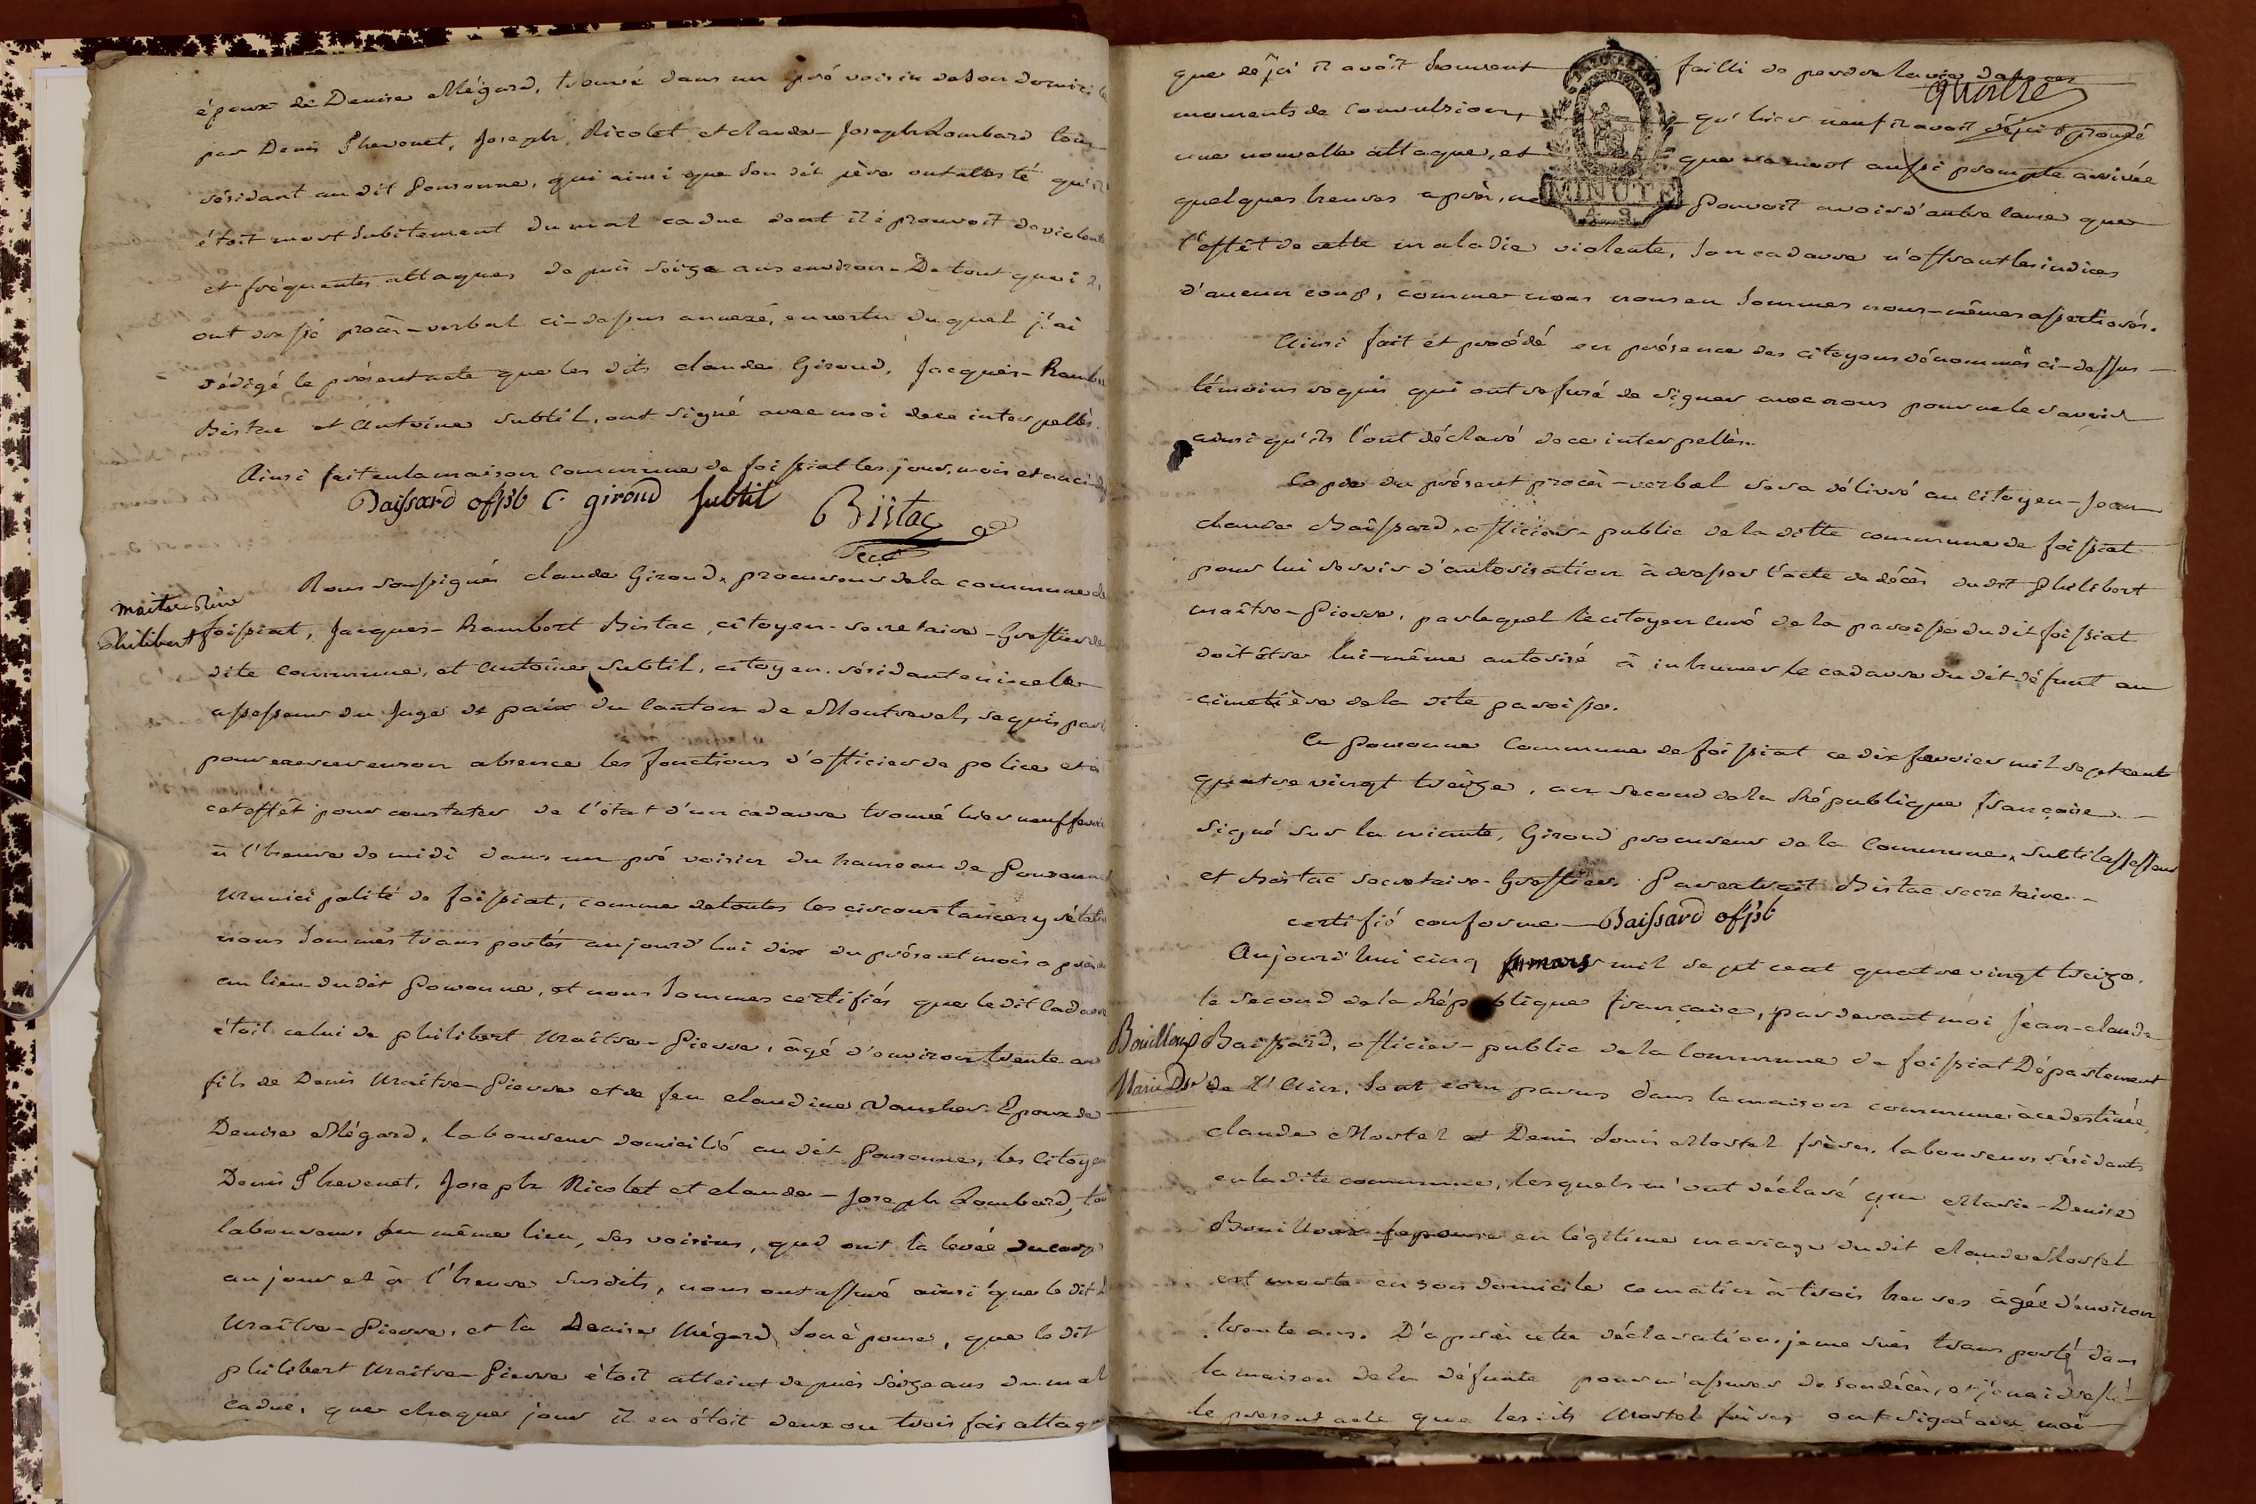 époux de Denise Mégard, trouvé dans un pré voisin de son domicile
par Denis Thevenet, Joseph Nicolet et claude-Joseph Lombard tous
résidant au dit Pouronne, qui ainsi que son dit père ont attesté qu'il
étoit mort subitement du mal caduc dont il éprouvoit de violentes
et fréquentes attaques depuis seize ans environ. De tout quoi ils
ont dressé procès-verbal ci-dessus annexé, en vertu duquel j'ai
rédigé le présent acte que les dits claude Giroud, Jacques-Rambert
Bistac et Antoine Subtil, ont signé avec moi de ce interpellés.
Ainsi fait en la maison commune de foissiat les jour, mois et an ci
Baissard offpb C. giroud Subtil Bistac
Secre
Maitre Pierre
Philibert
Nous soussignés claude Giroud, procureur de la commune de
foissiat, Jacques-Rambert Bistac, citoyen-secretaire-Greffier de
dite commune, et Antoine Subtil, citoyen résidant en icelle
assesseur du Juge de paix du Canton de Montrevel, requis par
pour exercer en son absence les fonctions d'officier de police et à
cet effêt pour constater de l'état d'un cadavre trouvé hier neuf fevrier
à l'heure de midi dans un pré voisin du hameau de Pouronne
Municipalité de foissiat, comme de toutes les circonstances y rélatives
nous sommes transportés aujourd'hui dix du présent mois après
au lieu dudit Pouronne, et nous sommes certifiés que le dit Cadavre
étoit celui de philibert Maître-Pierre, âgé d'environ trente ans
fils de Denis Maître-Pierre et de feu claudine Vaucher. Epoux de
Denise Mégard, laboureur domicilié au dit Pouronne, les Citoyens
Denis Thevenet, Joseph Nicolet et claude-Joseph Lombard, tous
laboureurs du même lieu, ses voisins, qui ont fa levée du corps
au jour et à l'heure susdits, nous ont assuré ainsi que le dit
Maître-Pierre, et la Denise Mégard, son épouse, que le dit
philibert Maître-Pierre étoit atteint depuis seize ans du mal
caduc, que chaque jour il en étoit deux ou trois fois attaqué
que déja il avoit souvent failli de perdre la vie dans ces
quatre
moments de convulsion, qu'hier neuf il avoit déja éprouvé
une nouvelle attaque, et que sa mort aussi prompte arrivée
quelques heures après, ne Pouvoit avoir d'autre cause que
MINUTE
4 S.
l'effêt de cette maladie violente, son cadavre n'offrant les indices
d'aucun coup, comme nous nous en sommes nous-mêmes assertiorés.
Ainsi fait et procédé en présence des citoyens dénommés ci-dessus
témoins requis qui ont refusé de signer avec nous pour ne le savoir
ainsi qu'ils l'ont déclaré de ce interpellés.
Copie du présent procès-verbal sera délivré au citoyen-Jean
claude Baissard, officier-public de la ditte commune de foissiat
pour lui servir d'autorisation à dresser l'acte de décès dudit Philibert
maître-Pierre, par lequel le citoyen curé de la paroisse dudit foissiat
doit être lui-même autorisé à inhumer le cadavre du dit défunt au
cimetière de la dite paroisse.
A Pouronne Commune de foissiat ce dix fevrier mil sept cent
quatre vingt treize, an second de la République françoise.
Signé sur la minute, Giroud procureur de la Commune, Subtil assesseur
et Bistac secretaire-Greffier. Par extrait Bistac secretaire
certifié conforme Baissard offpb
Bouilloux
Marie Dse
Aujourd'hui cinq mars mil sept cent quatre vingt treize.
le second de la République française, par devant moi Jean-claude
Baissard, officier-public de la Commune de foissiat Département
de l'Ain, sont comparus dans la maison commune à ce destinée,
claude Mostel et Denis Louis Mostel frères, laboureurs résidants
en la dite commune, lesquels m'ont déclaré que Marie-Denise
Bouilloux épouse en légitime mariage dudit claude Mostel
est morte en son domicile ce matin à trois heures âgée d'environ
trente ans. D'après cette déclaration, je me suis transporté dans
la maison de la défunte pour m'assurer de son décès, et j'en ai dressé
le present acte que les dits Mostel frères ont signé avec moi